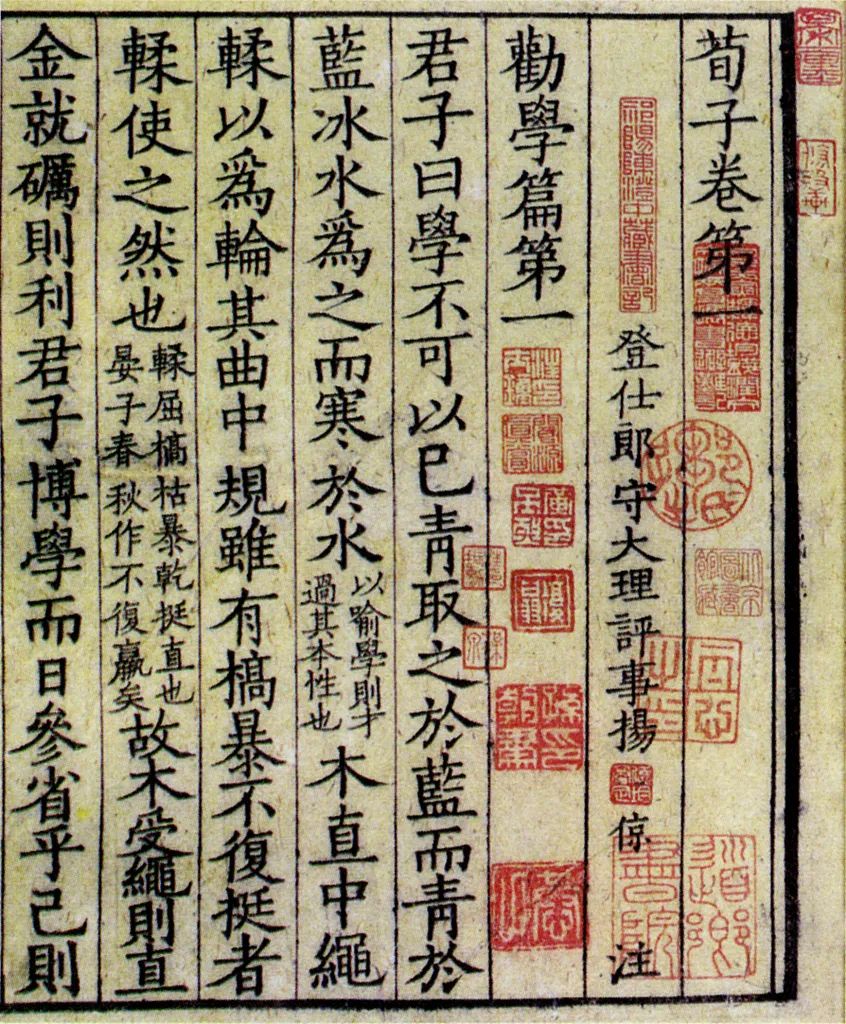 荀子卷第一
祁陽陳澄中藏書記
登仕郎守大理評事揚倞注
勸學篇第一
君子曰學不可以已青取之於藍而青於
藍冰水爲之而寒於水以喻學則才過其本性也木直中繩
輮以爲輪其曲中規雖有槁暴不復挺者
輮使之然也輮屈槁枯暴乾挺直也晏子春秋作不復贏矣故木受繩則直
金就礪則利君子博學而日參省乎己則